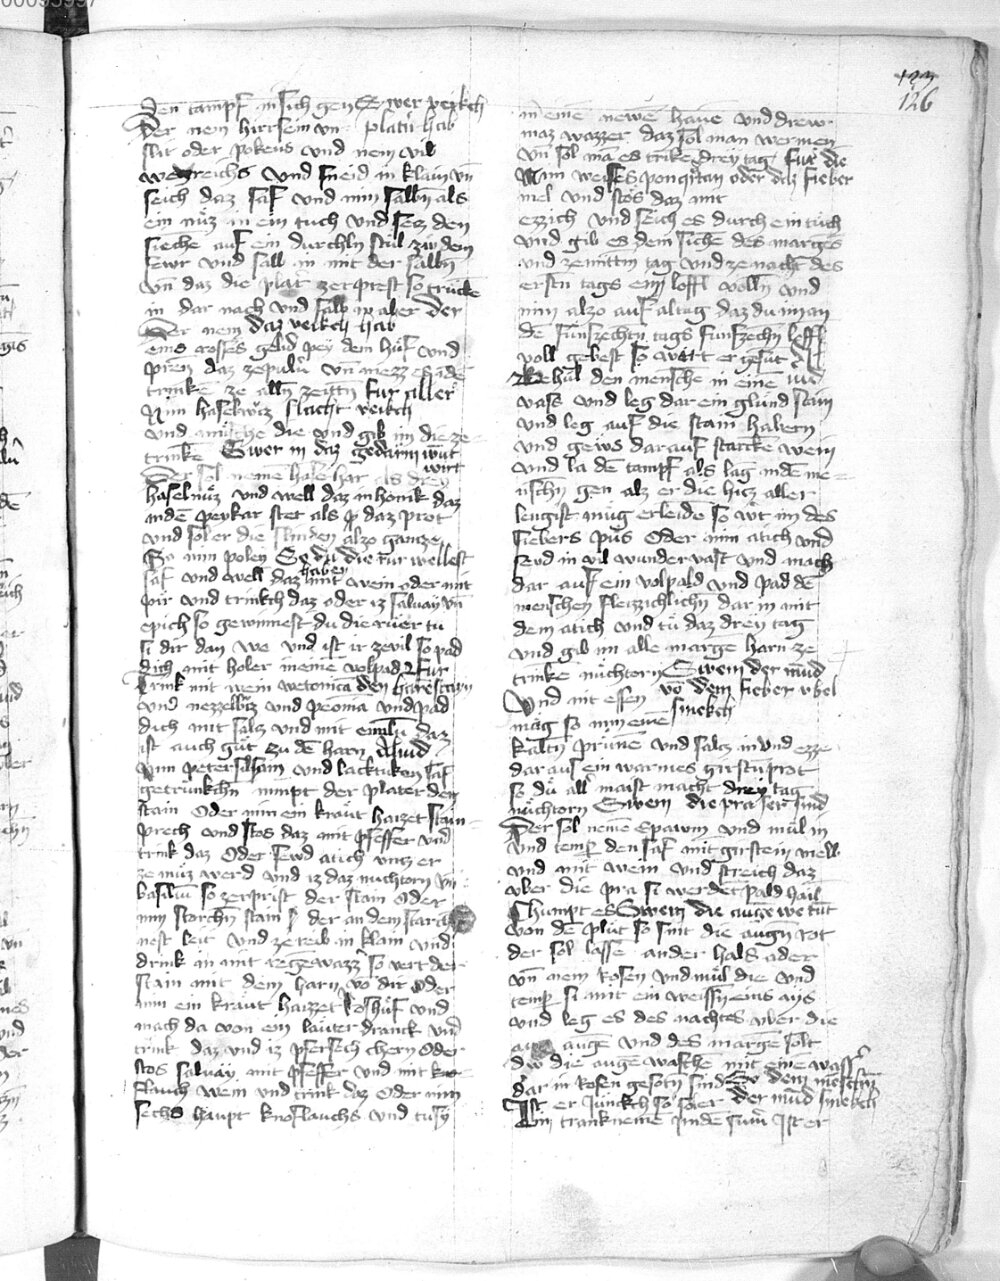 126
den tampf in sich gen Swer veikch
Der nem hirrsem vn platn hab
slit oder pokens vnd nem vil
wegreichs vnd sneid in klain vn
seich daz saf vnd nim salbn als
ein nüz in ein tuch vnd secz den
sieche auf ein durchln stul zw dem
fewr vnd salb in mit der salbn
vn daz die plater zerprest so trucke
in dar nach vnd salb in aber der
Der nem daz veikch hab
eins rosses gelid pey dem huf vnd
pren daz zepuluer vn mezz es in de
trinke ze alln zeittn Fur aller
Nim haselwrz slacht veikch
vnd mische die vnd gib im die ze
trinke Swer in daz gedarm wut
wirt
Der sol neme hase har als drey
haselnüz vnd well daz in honik daz
in de peykar stet als daz prot
vnd sol er die slinden alzo gancze
So nim poley So du die rur wellest
haben
saf vnd well daz mit wein oder mit
pir vnd trinkch daz oder iz saluay vn
epich so gewinnest du die ruer tu
si dir dan we vnd ist ir zevil so pad
dich mit holer in eine volpad Fur
Trink mit wein wetonica den harestain
vnd nezzelwrz vnd peonia vnd pad
dich mit salz vnd mit daz
ist auch gut zu de harn
Nim petersilsam vnd lacktuken saf
getrunkchn nimpt der plater den
stain Oder nim ein kraut haizzet stain
prech vnd stos daz mit pfeffer vnd
trink daz Oder sewd atich vncz er
ze muz werd vnd iz daz nuchtern vn
basilm so zerprist der stain Oder
nim storchn stain der an dem storch
nest leit vnd ze reib in klain vnd
drink in mit regewazz so vert der
stain mit dem harn vo dir Oder
nim ein kraut haizzet Roshuf vnd
mach da von ein lauter dranck vnd
trink daz vnd iz pfersech chern Oder
stos saluay mit pfeffer vnd mit kno
flauch wein vnd trink daz Oder nim
sechs haupt knoflauchs vnd tusy
in eine newe haue vnd drew
maz wazzer daz sol man wermen
vn sol ma es trike drey tag Fur die
Nim weisses oder daz fieber
mel vnd stos daz mit
ezzich vnd seich es durch ein tuch
vnd gib es dem siche des marges
vnd ze mittm tag vnd ze nacht des
erstn tags ein loffl volln vnd
nim alzo auf altag daz du im an
de funfzechtn tags funfzechn loffl
voll gebest so wirt er gesut
Behul den mensche in eine
vass vnd leg dar ein glund stain
vnd leg auf die stain habern
vnd gews darauf starcke wein
vnd la de tampf als lag in de me
nschn gen alz er die hicz aller
lengist mug erleide so wt im des
fiebers pus Oder nim atich vnd
seud in vil wunder vast vnd mach
dar auf ein volpald vnd pad de
menschen fleizzichlichn dar in mit
dem atich vnd tu daz drey tag
vnd gib im alle marge harn ze
trinke nuchtern Swem der mud
vo dem fieber vbel
Vnd nit essen smekch
mag so nim eine
kaltn prune vnd salcz in vnd ezze
darauf ein warmes girstnprot
so du all maist macht drey tag
nuchtern Swem die pra ser sind
Der sol neme Epawm vnd mul in
vnd temper den saf mit girstein melb
vnd mit wein vnd streich daz
vber die pra si werdet pald hail
Chumpt es Swem die auge we tut
von de plut so sint die augn rot
der sol lasse an der hals ader
vn nem Rosen vnd mul die vnd
temper si mit ein weissn eins ays
vnd leg es des nachtes vber die
auge vnd des marge solt
dw die auge wasche mit eine wasser
dar in Rosen gesotn sind So dem mesche
der mud smekch
Ist er junckch so sol er
ein trank neme in de sumer Ist er